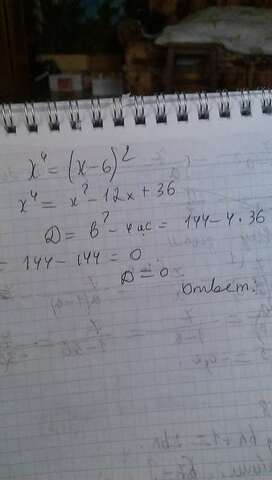 x⁴ = (x-6)²
x⁴ = x² - 12x + 36
D = b² - 4ac = 144 - 4·36
= 144 - 144 = 0
D = 0
Ответ: